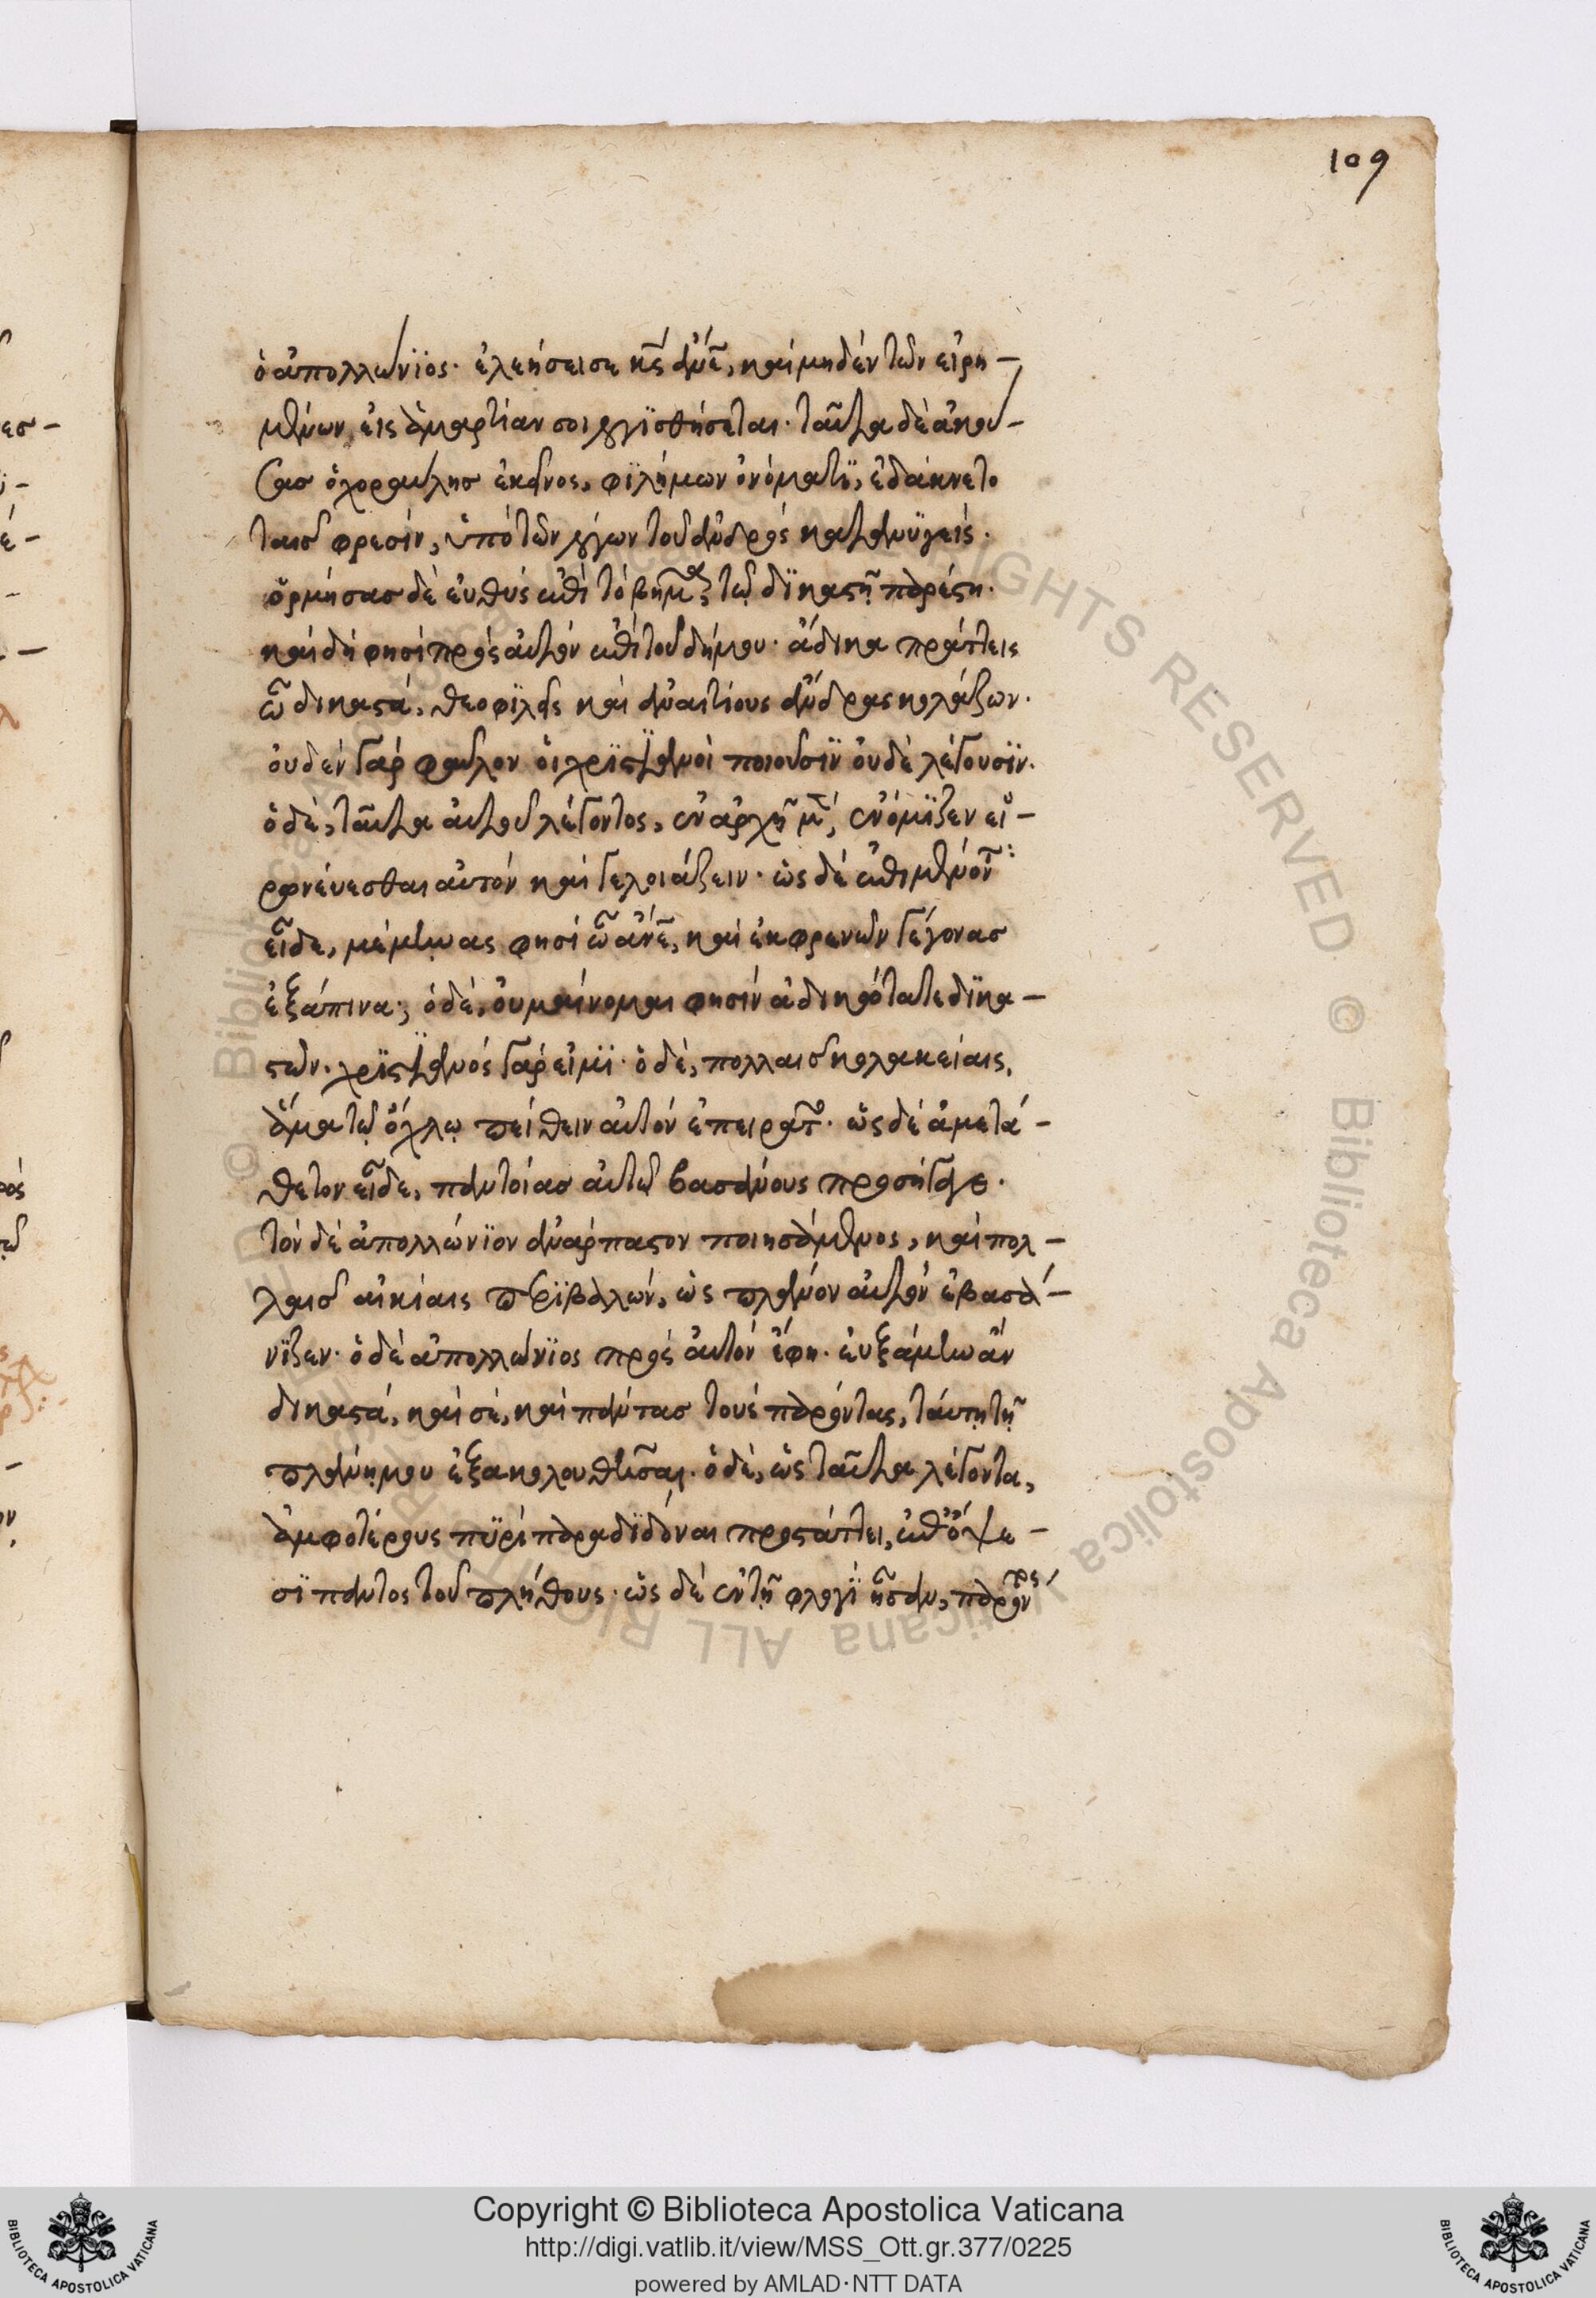 109
ὁ ἀπολλώνϊος· ἐλεήσει σε κ̅ς ἄνε̅, καὶ μηδὲν τῶν εἰρη-
μένων, εἰς ἁμαρτίαν σοι λογϊσθήσεται· ταῦτα δὲ ἀκού-
σας ὁ χοραύλης ἐκεῖνος, φϊλήμων ὀνόματϊ, ἐδάκνετο
ταῖς φρεσίν, ὑπὸ τῶν λόγων τοῦ ἀνδρὸς κατανϋγείς·
ὁρμήσας δὲ εὐθὺς ἐπὶ τὸ βῆμα, τῷ δϊκαστῇ παρέστη·
καὶ δή φησὶ πρὸς αὐτὸν ἐπὶ τοῦ δήμου· ἄδικα πράττεις
ὦ δικαστά, θεοφϊλεῖς καὶ ἀναιτίους ἄνδρας κολάζων·
οὐδὲν γὰρ φαῦλον οἱ χρϊστϊανοὶ ποιοῦσϊν οὐδὲ λέγουσϊν·
ὁ δὲ, ταῦτα αὐτοῦ λέγοντος, ἐν ἀρχῇ μὲν, ἐνόμϊζεν εἰ-
ρωνεύεσθαι αὐτὸν καὶ γελοιάζειν· ὡς δὲ ἐπιμένοντα
εἶδε, μέμηνας φησὶ ὦ ἄνε̅, καὶ ἐκφρενῶν γέγονας
ἐξάπινα; ὁ δὲ, οὐ μαίνομαι φησὶν ἀδικώτατε δϊκα-
στῶν· χρϊστϊανὸς γάρ εἰμϊ· ὁ δὲ, πολλαῖς κολακείαις,
ἅμα τῷ ὄχλῳ πείθειν αὐτὸν ἐπειρᾶτο· ὡς δὲ ἀμετά-
θετον εἶδε, παντοίας αὐτῷ βασάνους προσήγαγε·
τὸν δὲ ἀπολλώνϊον ἀνάρπαστον ποιησάμενος, καὶ πολ-
λαῖς αἰκίαις περϊβαλὼν, ὡς πλάνον αὐτὸν ἐβασά-
νϊζεν· ὁ δὲ ἀπολλώνϊος πρὸς αὐτὸν ἔφη· εὐξάμην ἂν
δικαστά, καὶ σὲ, καὶ πάντας τοὺς παρόντας, ταύτῃ τῇ
πλάνῃ μου ἐξακολουθῆσαι· ὁ δὲ, ὡς ταῦτα λέγοντα,
ἀμφοτέρους πϋρὶ παραδϊδόναι προστάττει, ἐπ' ὄψε-
σϊ παντὸς τοῦ πλήθους· ὡς δὲ ἐν τῇ φλογϊ ἦσαν, παρόντος
Copyright © Biblioteca Apostolica Vaticana
http://digi.vatlib.it/view/MSS_Ott.gr.377/0225
powered by AMLAD·NTT DATA